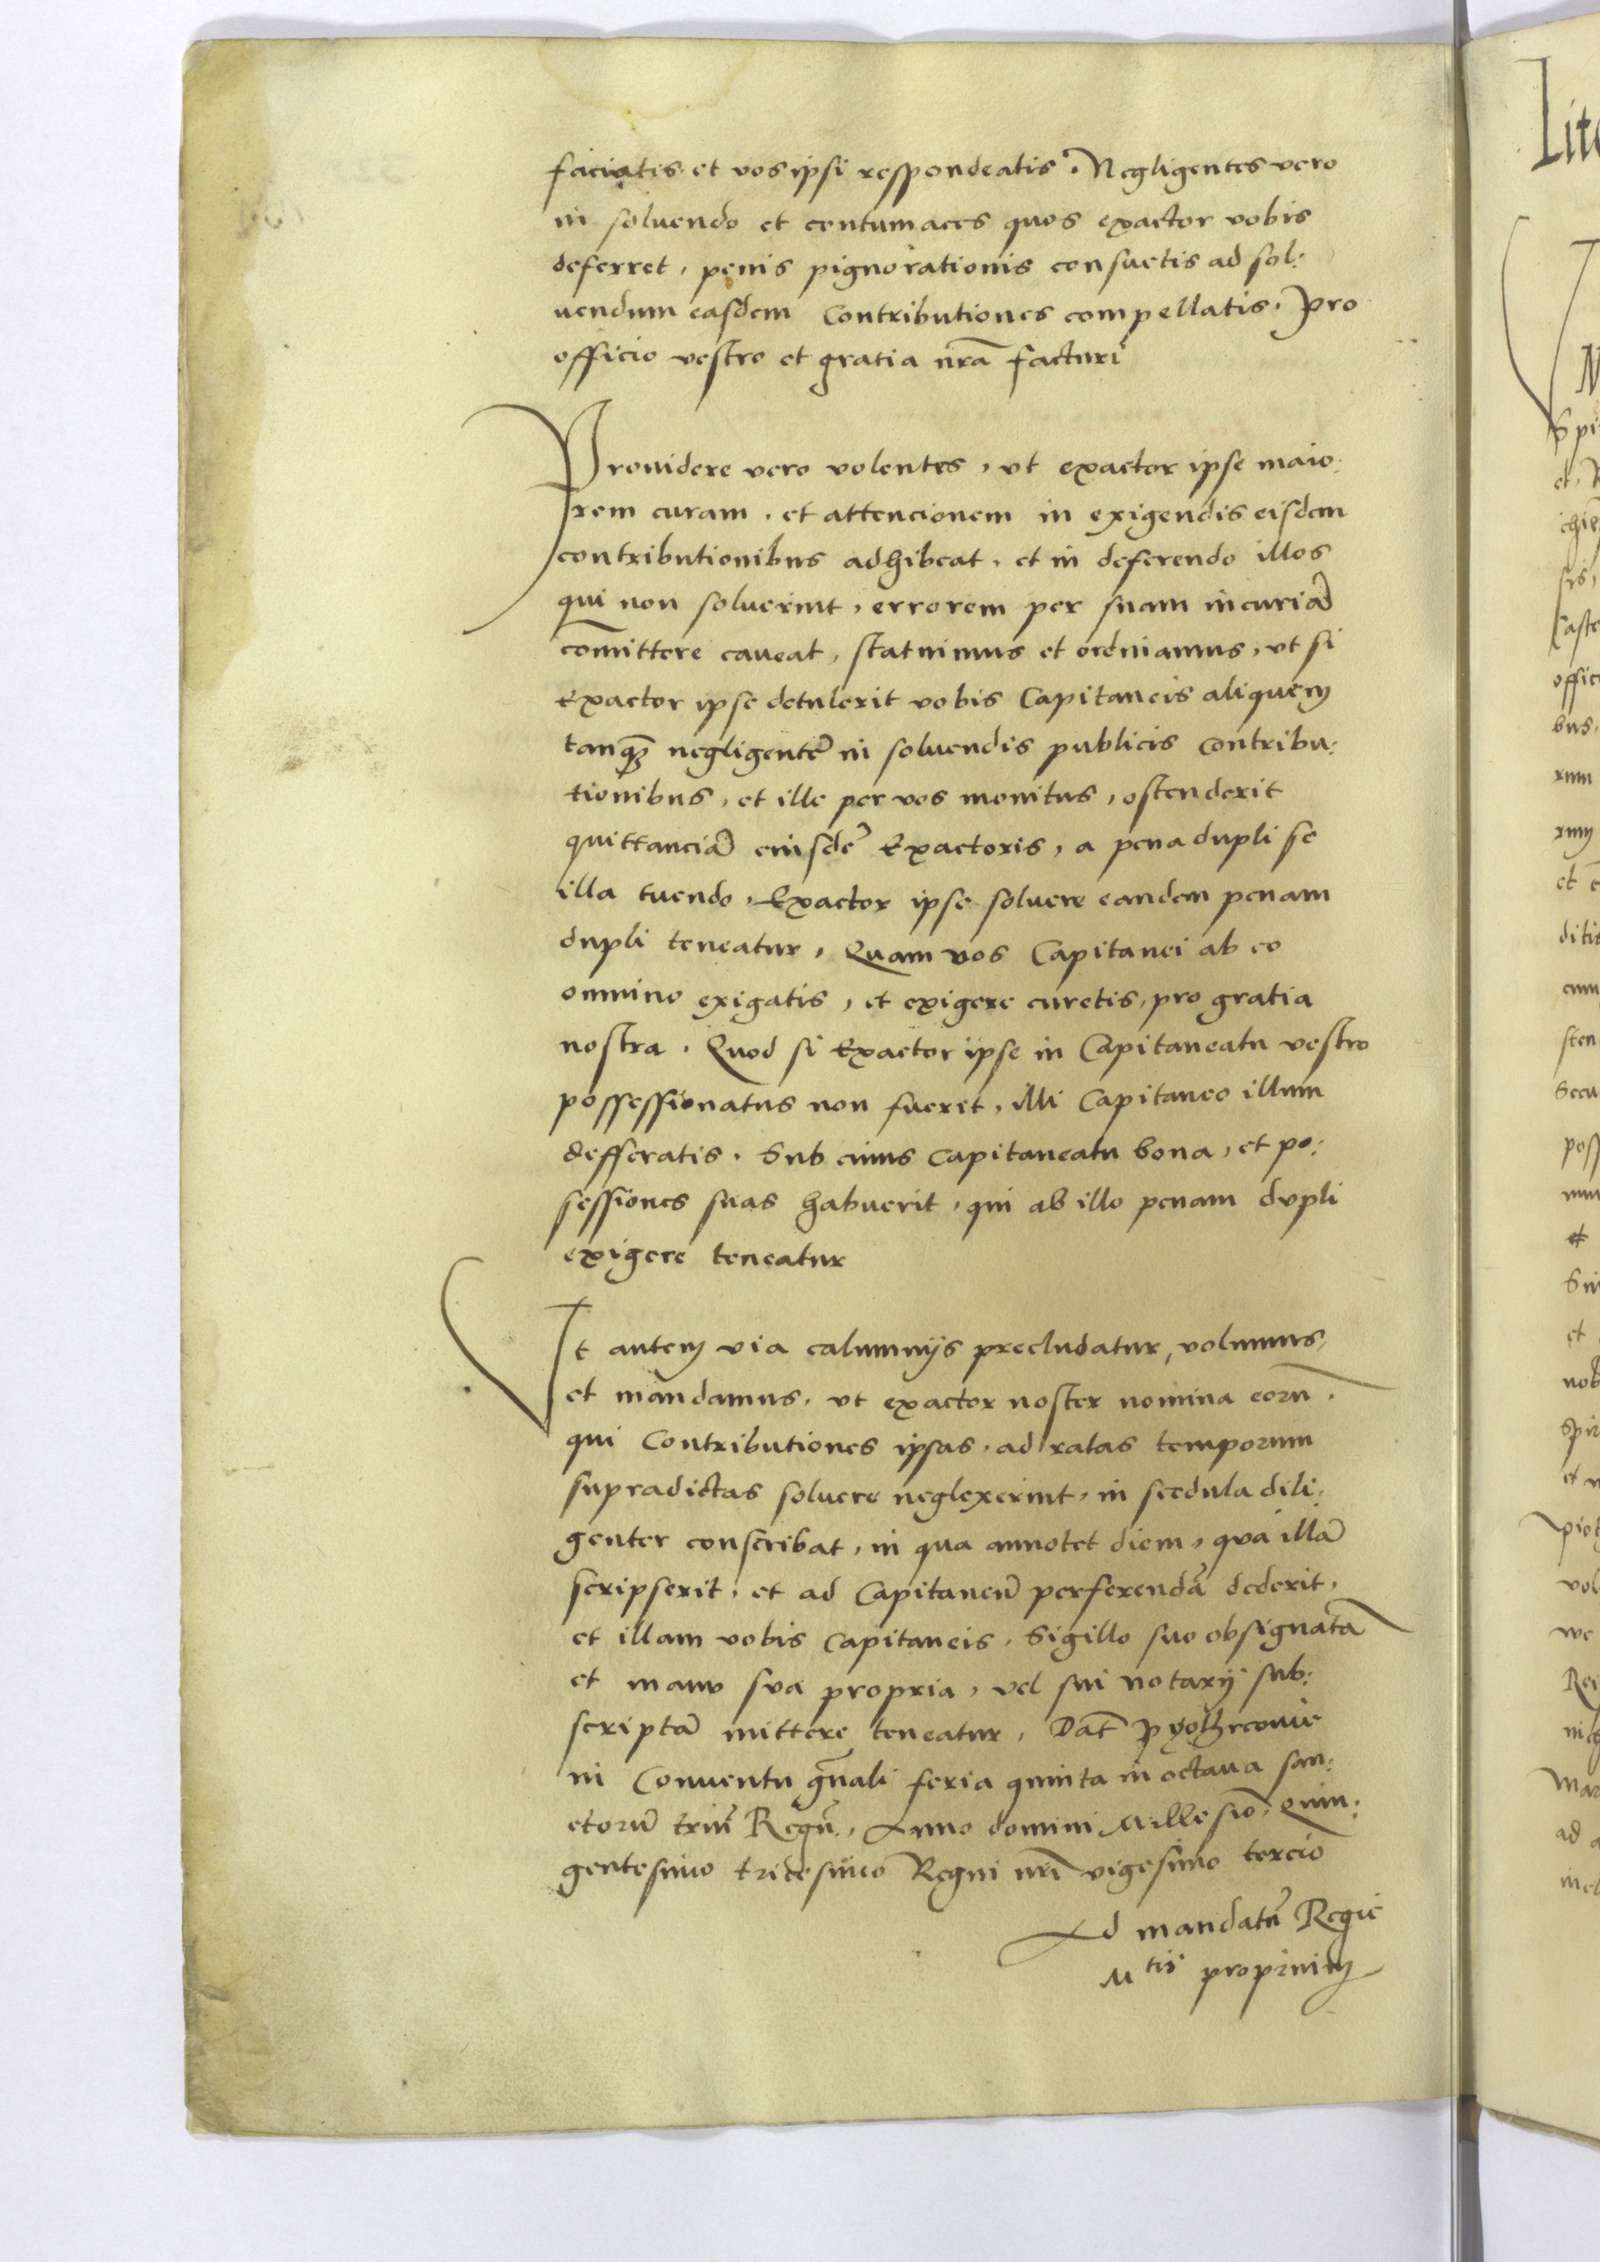 faciatis et vos ipsi respondeatis. Negligentes vero
in soluendo et contumaces quos exactor vobis
deferret, penis pignorationis consuetis ad sol:
uendum easdem Contributiones compellatis. Pro
officio vestro et gratia nrã facturi
Prouidere vero volentes, vt exactor ipse maio:
rem curam, et attencionem in exigendis eisdem
contributionibus adhibeat, et in deferendo illos
qui non soluerint, errorem per suam incuriã
cõmittere caveat, statuimus et ordiniamus, vt si
Exactor ipse detulerit vobis Capitaneis aliquem
tanqȝ negligentẽ in soluendis publicis contribu:
tionibus, et ille per vos monitus, ostenderit
quittanciã eiusdẽ Exactoris, a pena dupli se
illa tuendo, Exactor ipse soluere eandem penam
dupli teneatur, Quam vos Capitanei ab eo
omnino exigatis, et exigere curetis, pro gratia
nostra. Quod si Exactor ipse in Capitaneatu vestro
possessionatus non fuerit, illi Capitaneo illum
defferatis. Sub cuius Capitaneatu bona, et po:
sessiones suas habuerit, qui ab illo penam dupli
exigere teneatur
Vt autem via calumnijs precludatur, volumus,
et mandamus, vt exactor noster nomina eorũ.
qui Contributiones ipsas, ad ratas temporum
supradictas soluere neglexerint, in scedula dili:
genter conscribat, in qua annotet diem, qua illã
scripserit, et ad Capitaneũ perferendã dederit,
et illam vobis Capitaneis, Sigillo suo obsignatã
et manu sua propria, vel sui notarij sub:
scriptã mittere teneatur, Dat̃ Pyothrcouie
in Conuentu gñali feria quinta in octaua san:
ctorũ triũ Regũ, Anno domini Millesiõ Quin:
gentesimo tricesimo Regni nrĩ vigesimo tercio
Ad mandatũ Regie
Mtis proprium